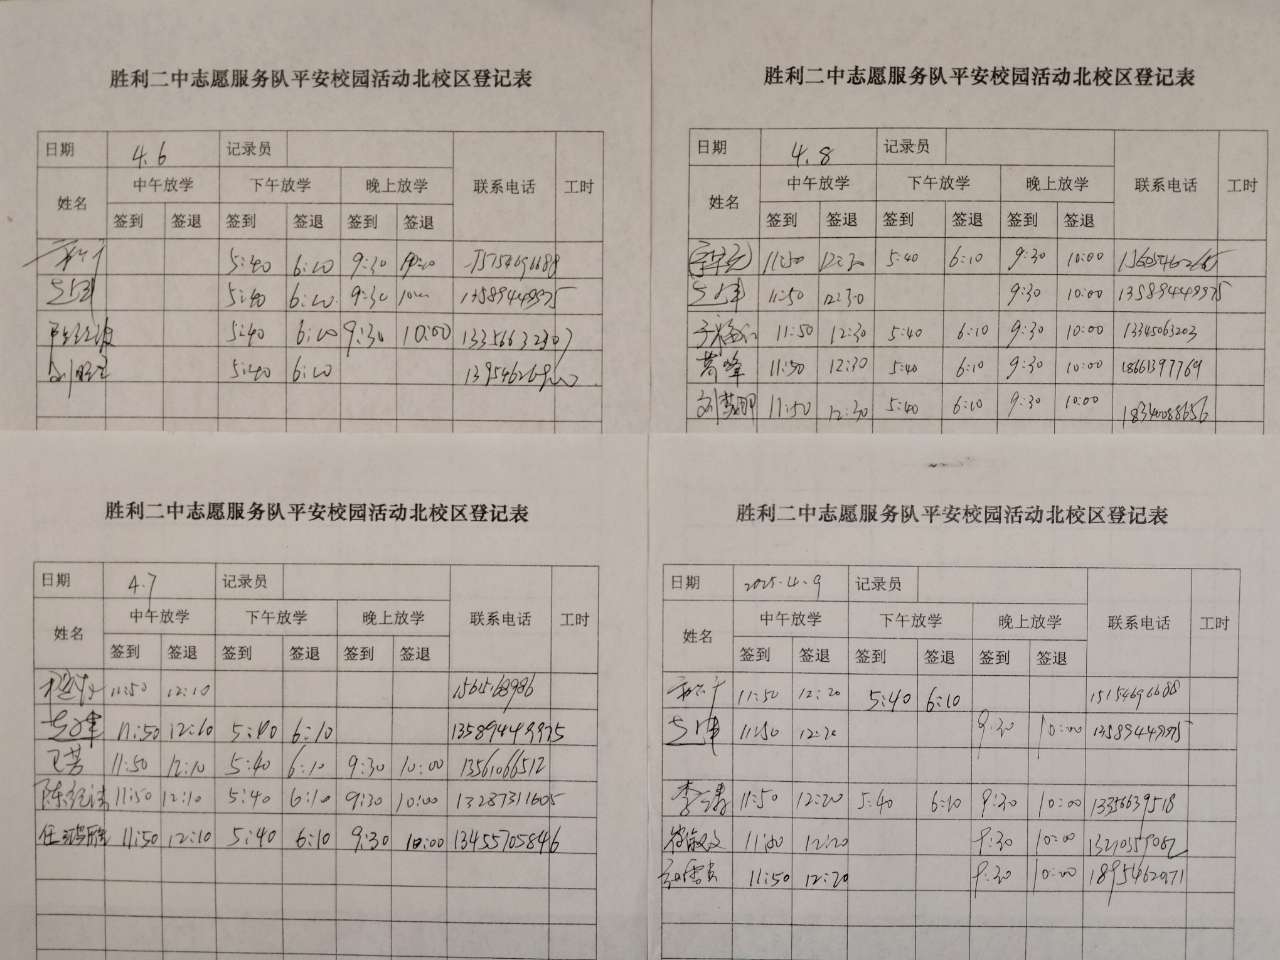 胜利二中志愿服务队平安校园活动北校区登记表
日期 4.6 记录员 联系电话 工时
姓名 中午放学 下午放学 晚上放学
签到 签退 签到 签退 签到 签退
5:40 6:10 9:30
5:40 6:10 9:30 13589449975
5:40 6:10 9:30 10:00
5:40 6:10
胜利二中志愿服务队平安校园活动北校区登记表
日期 4.8 记录员 联系电话 工时
姓名 中午放学 下午放学 晚上放学
签到 签退 签到 签退 签到 签退
11:50 12:30 5:40 6:10 9:30 10:00
11:50 12:30 9:30 10:00 13589449975
11:50 12:30 5:40 6:10 9:30 10:00 13345063203
黄峰 11:50 12:30 5:40 6:10 9:30 10:00 18661397769
11:50 12:30 5:40 6:10 9:30 10:00 18340088656
胜利二中志愿服务队平安校园活动北校区登记表
日期 4.7 记录员 联系电话 工时
姓名 中午放学 下午放学 晚上放学
签到 签退 签到 签退 签到 签退
11:50 12:10
11:50 12:10 5:40 6:10 13589449975
王芳 11:50 12:10 5:40 6:10 9:30 10:00 13561066512
11:50 12:10 5:40 6:10 9:30 10:00 13287311605
11:50 12:10 5:40 6:10 9:30 10:00 13455705846
胜利二中志愿服务队平安校园活动北校区登记表
日期 2025.4.9 记录员 联系电话 工时
姓名 中午放学 下午放学 晚上放学
签到 签退 签到 签退 签到 签退
11:50 12:20 5:40 6:10 15154696688
11:50 12:20 9:30 10:00 13589449975
李涛 11:50 12:20 5:40 6:10 9:30 10:00 13356639518
11:50 12:20 9:30 10:00
11:50 12:20 9:30 10:00